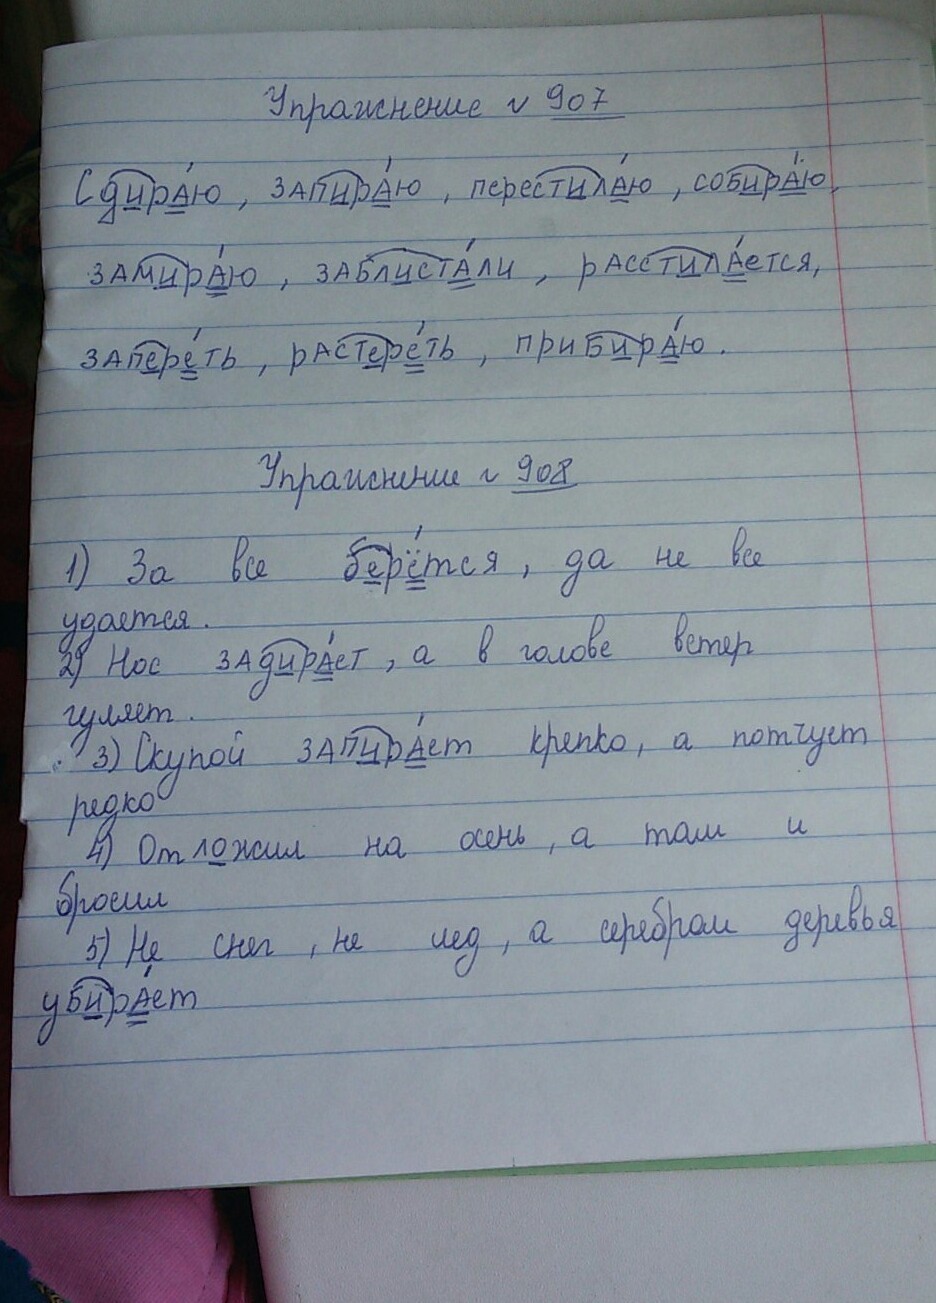 Упражнение № 907
Сдираю, запираю, перестилаю, собираю,
замираю, заблистали, расстилается,
запереть, растереть, прибираю.
Упражнение № 908
1) За все берётся, да не все
удается.
2) Нос задирает, а в голове ветер
гуляет.
3) Скупой запирает крепко, а потчует
редко
4) Отложил на осень, а там и
бросил
5) Не снег, не лед, а серебром деревья
убирает